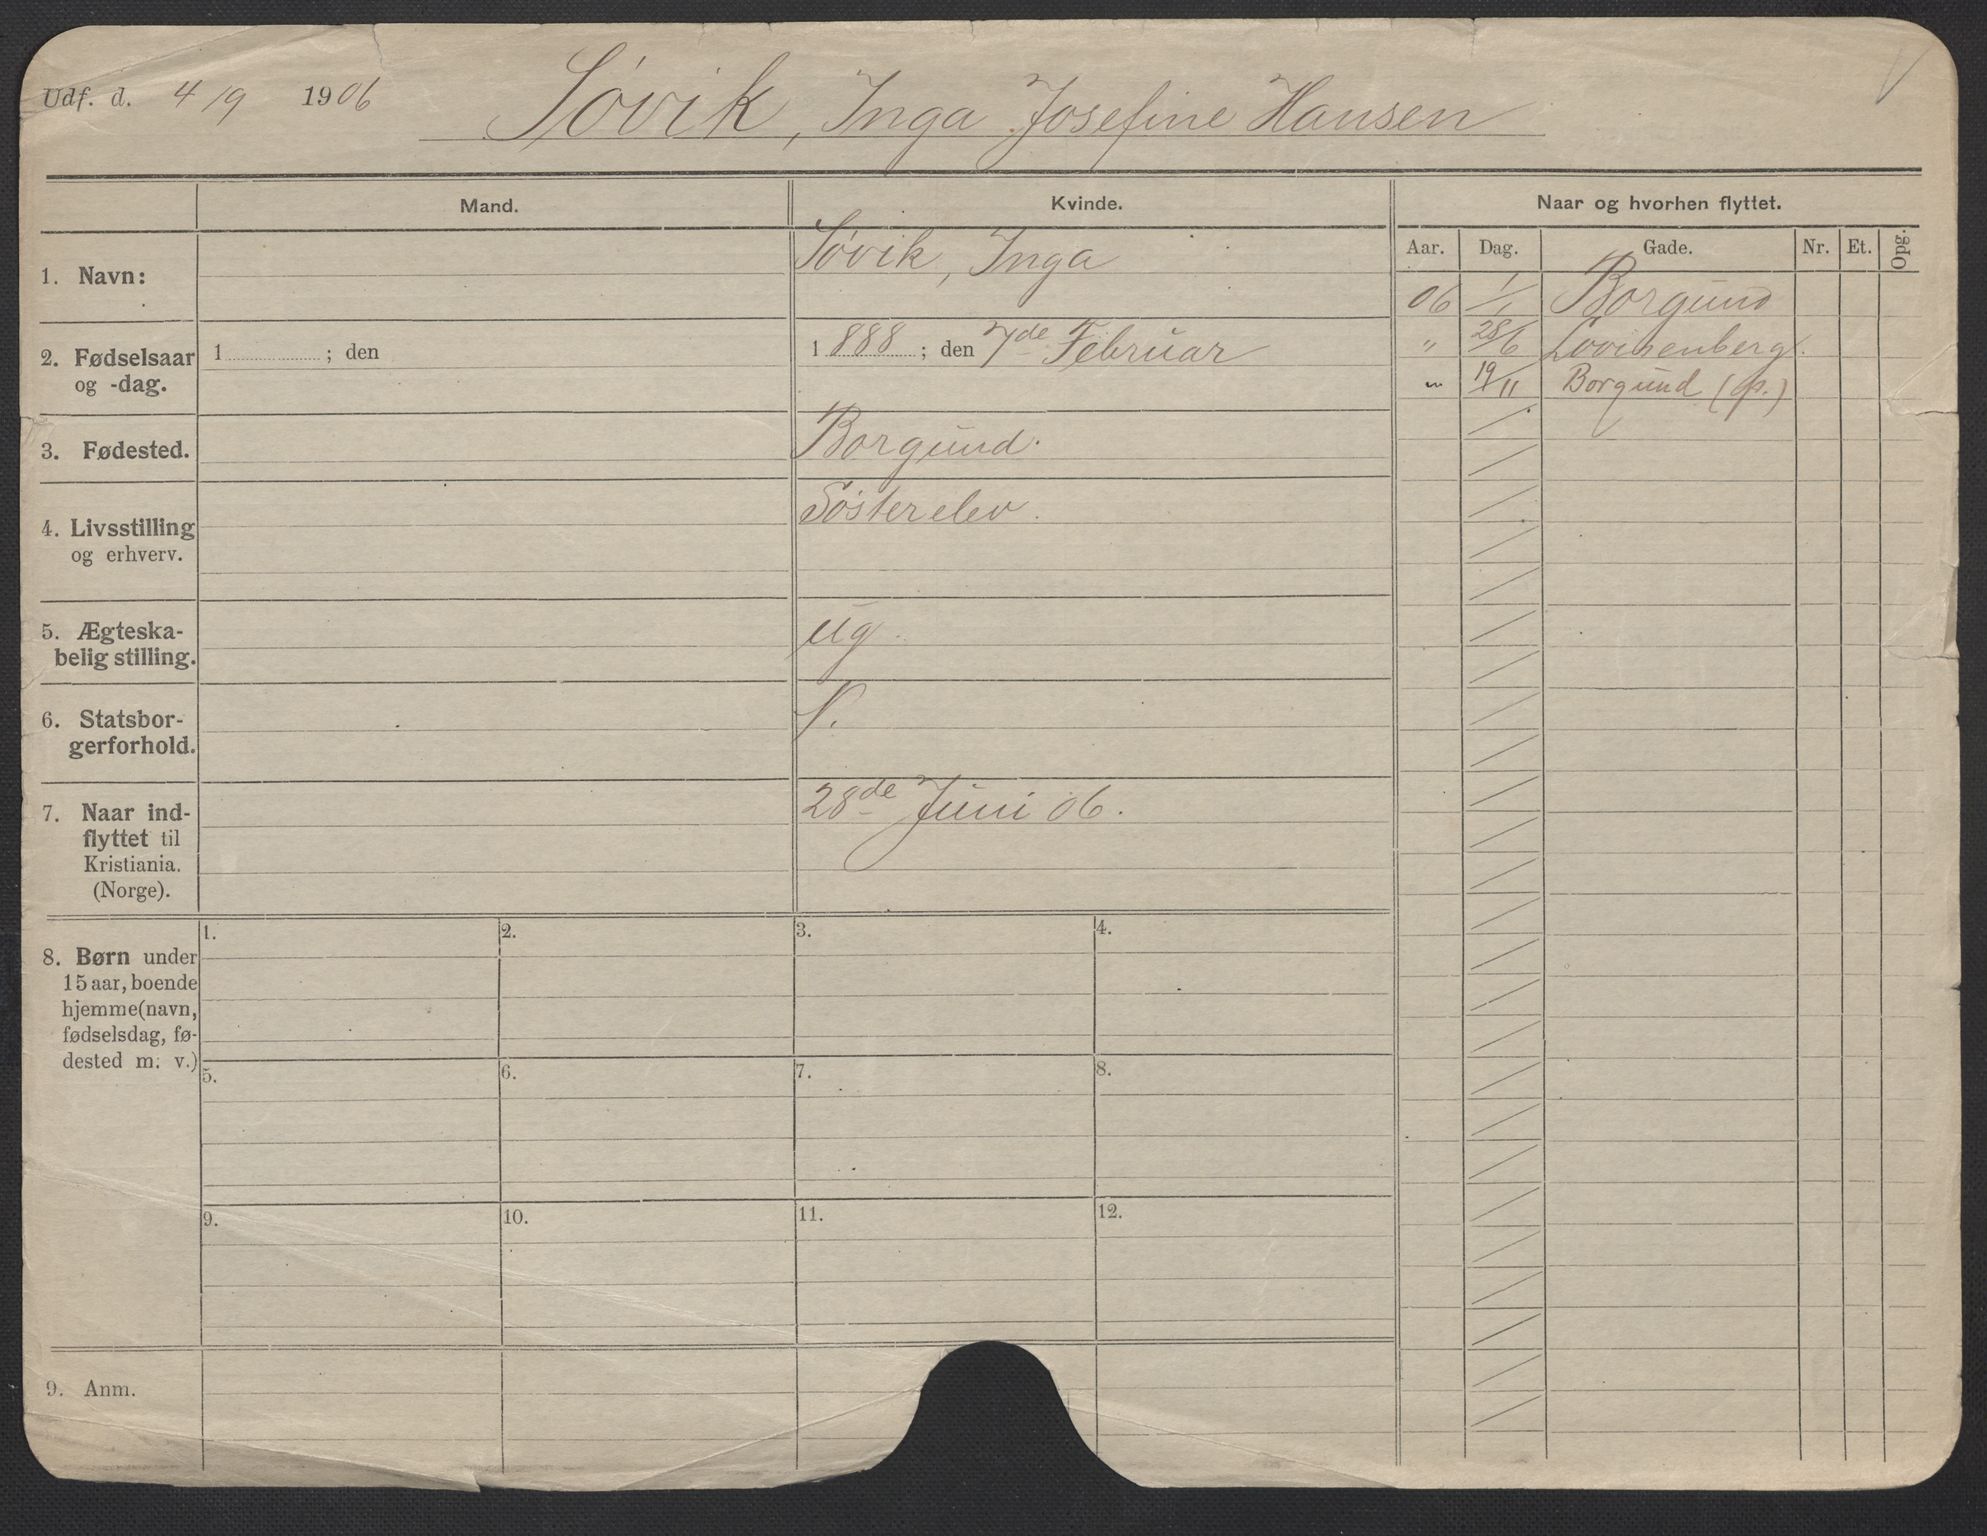 Udf. d. 4/9 1906 Søvik, Inga Josefine Hansen
Mand.
Kvinde.
Naar og hvorhen flyttet.
Aar. Dag. Gade. Nr. Et. Opg.
1. Navn:
Søvik, Inga
06 1/1 Borgund
" 28/6 Lovisenberg.
" 19/11 Borgund (p.)
2. Fødselsaar
og -dag.
1 ; den
1 888 ; den 7de Februar
3. Fødested.
Borgund.
4. Livsstilling
og erhverv.
Søsterelev.
5. Ægteska-
belig stilling.
ug.
6. Statsbor-
gerforhold.
7. Naar ind-
flyttet til
Kristiania.
(Norge).
28de Juni 06.
8. Børn under
15 aar, boende
hjemme (navn,
fødselsdag, fø-
dested m. v.)
1. 2. 3. 4.
5. 6. 7. 8.
9. 10. 11. 12.
9. Anm.